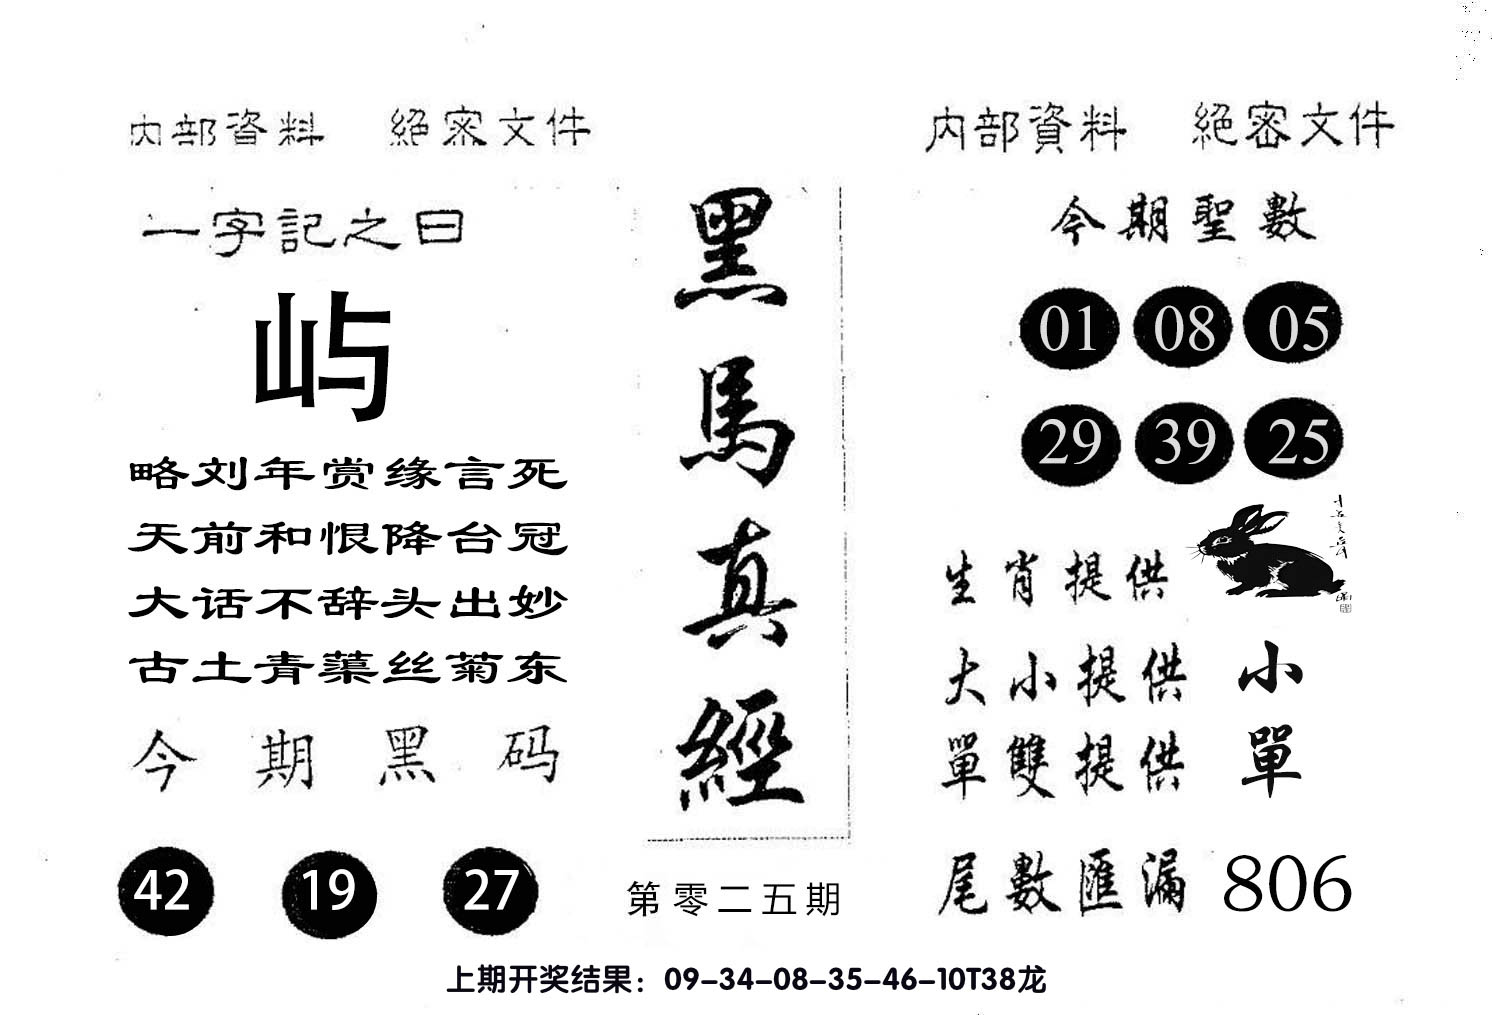 内部資料 絕密文件
一字記之曰
屿
略刘年赏缘言死
天前和恨降台冠
大话不辞头出妙
古土青蕖丝菊东
今期黑码
42 19 27
黑馬真經
第零二五期
内部資料 絕密文件
今期聖數
01 08 05
29 39 25
生肖提供
大小提供 小
單雙提供 單
尾數匯漏 806
上期开奖结果：09-34-08-35-46-10T38龙